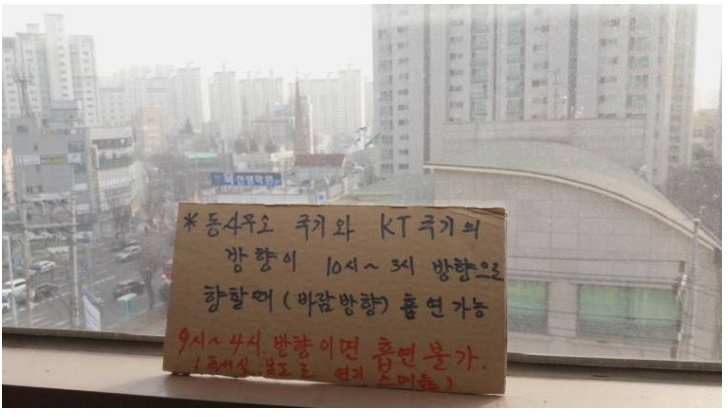 * 동사무소 국기와 KT 국기의
방향이 10시~3시 방향으로
향할때 (바람방향) 흡연가능
9시~4시 방향이면 흡연 불가.
연기 스며듦)